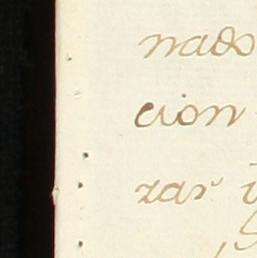 nado
cion
zar